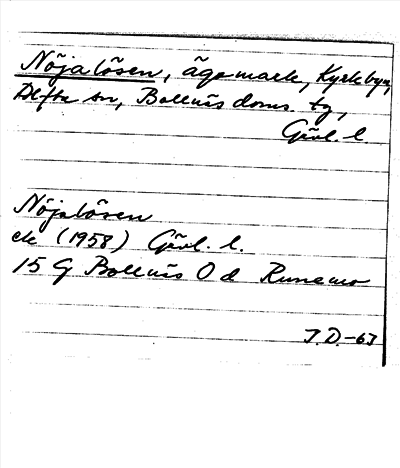 Nöjalösen, ägomark, Kyrkbyn,
Alfta sn, Bollnäs doms. tg,
Gävl. l.
Nöjalösen
ek (1958) Gävl. l.
15 G Bollnäs O d Runemo
J.D.-63